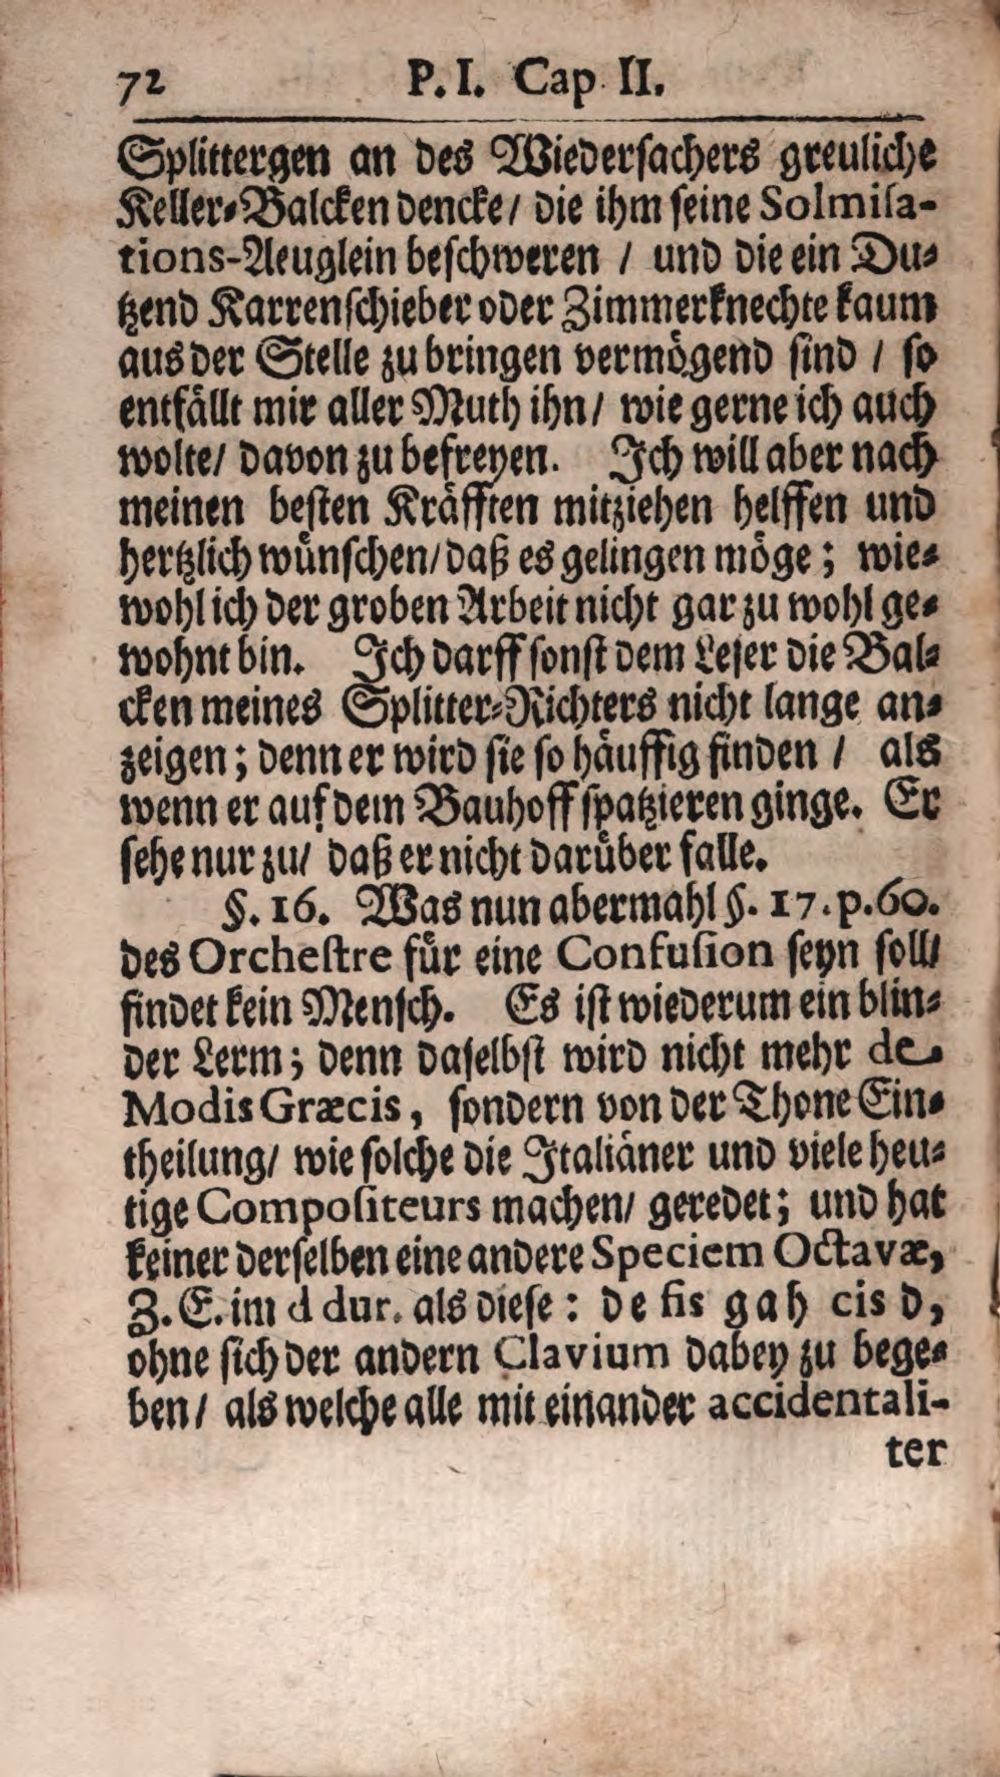 72 P. I. Cap. II.
Splittergen an des Wiedersachers greuliche
Keller-Balcken dencke/ die ihm seine Solmisa-
tions-Aeuglein beschweren / und die ein Du-
tzend Karrenschieber oder Zimmerknechte kaum
aus der Stelle zu bringen vermögend sind / so
entfällt mir aller Muth ihn/ wie gerne ich auch
wolte/ davon zu befreyen. Ich will aber nach
meinen besten Kräfften mitziehen helffen und
hertzlich wünschen/ daß es gelingen möge; wie-
wohl ich der groben Arbeit nicht gar zu wohl ge-
wohnt bin. Ich darff sonst dem Leser die Bal-
cken meines Splitter-Richters nicht lange an-
zeigen; denn er wird sie so häuffig finden / als
wenn er auf dem Bauhoff spatzieren ginge. Er
sehe nur zu/ daß er nicht darüber falle.
§. 16. Was nun abermahl §. 17. p. 60.
des Orchestre für eine Confusion seyn soll/
findet kein Mensch. Es ist wiederum ein blin-
der Lerm; denn daselbst wird nicht mehr de
Modis Græcis, sondern von der Thone Ein-
theilung/ wie solche die Italiäner und viele heu-
tige Compositeurs machen/ geredet; und hat
keiner derselben eine andere Speciem Octavæ,
Z. E. im d dur. als diese: d e fis g a h cis d,
ohne sich der andern Clavium dabey zu bege-
ben/ als welche alle mit einander accidentali-
ter